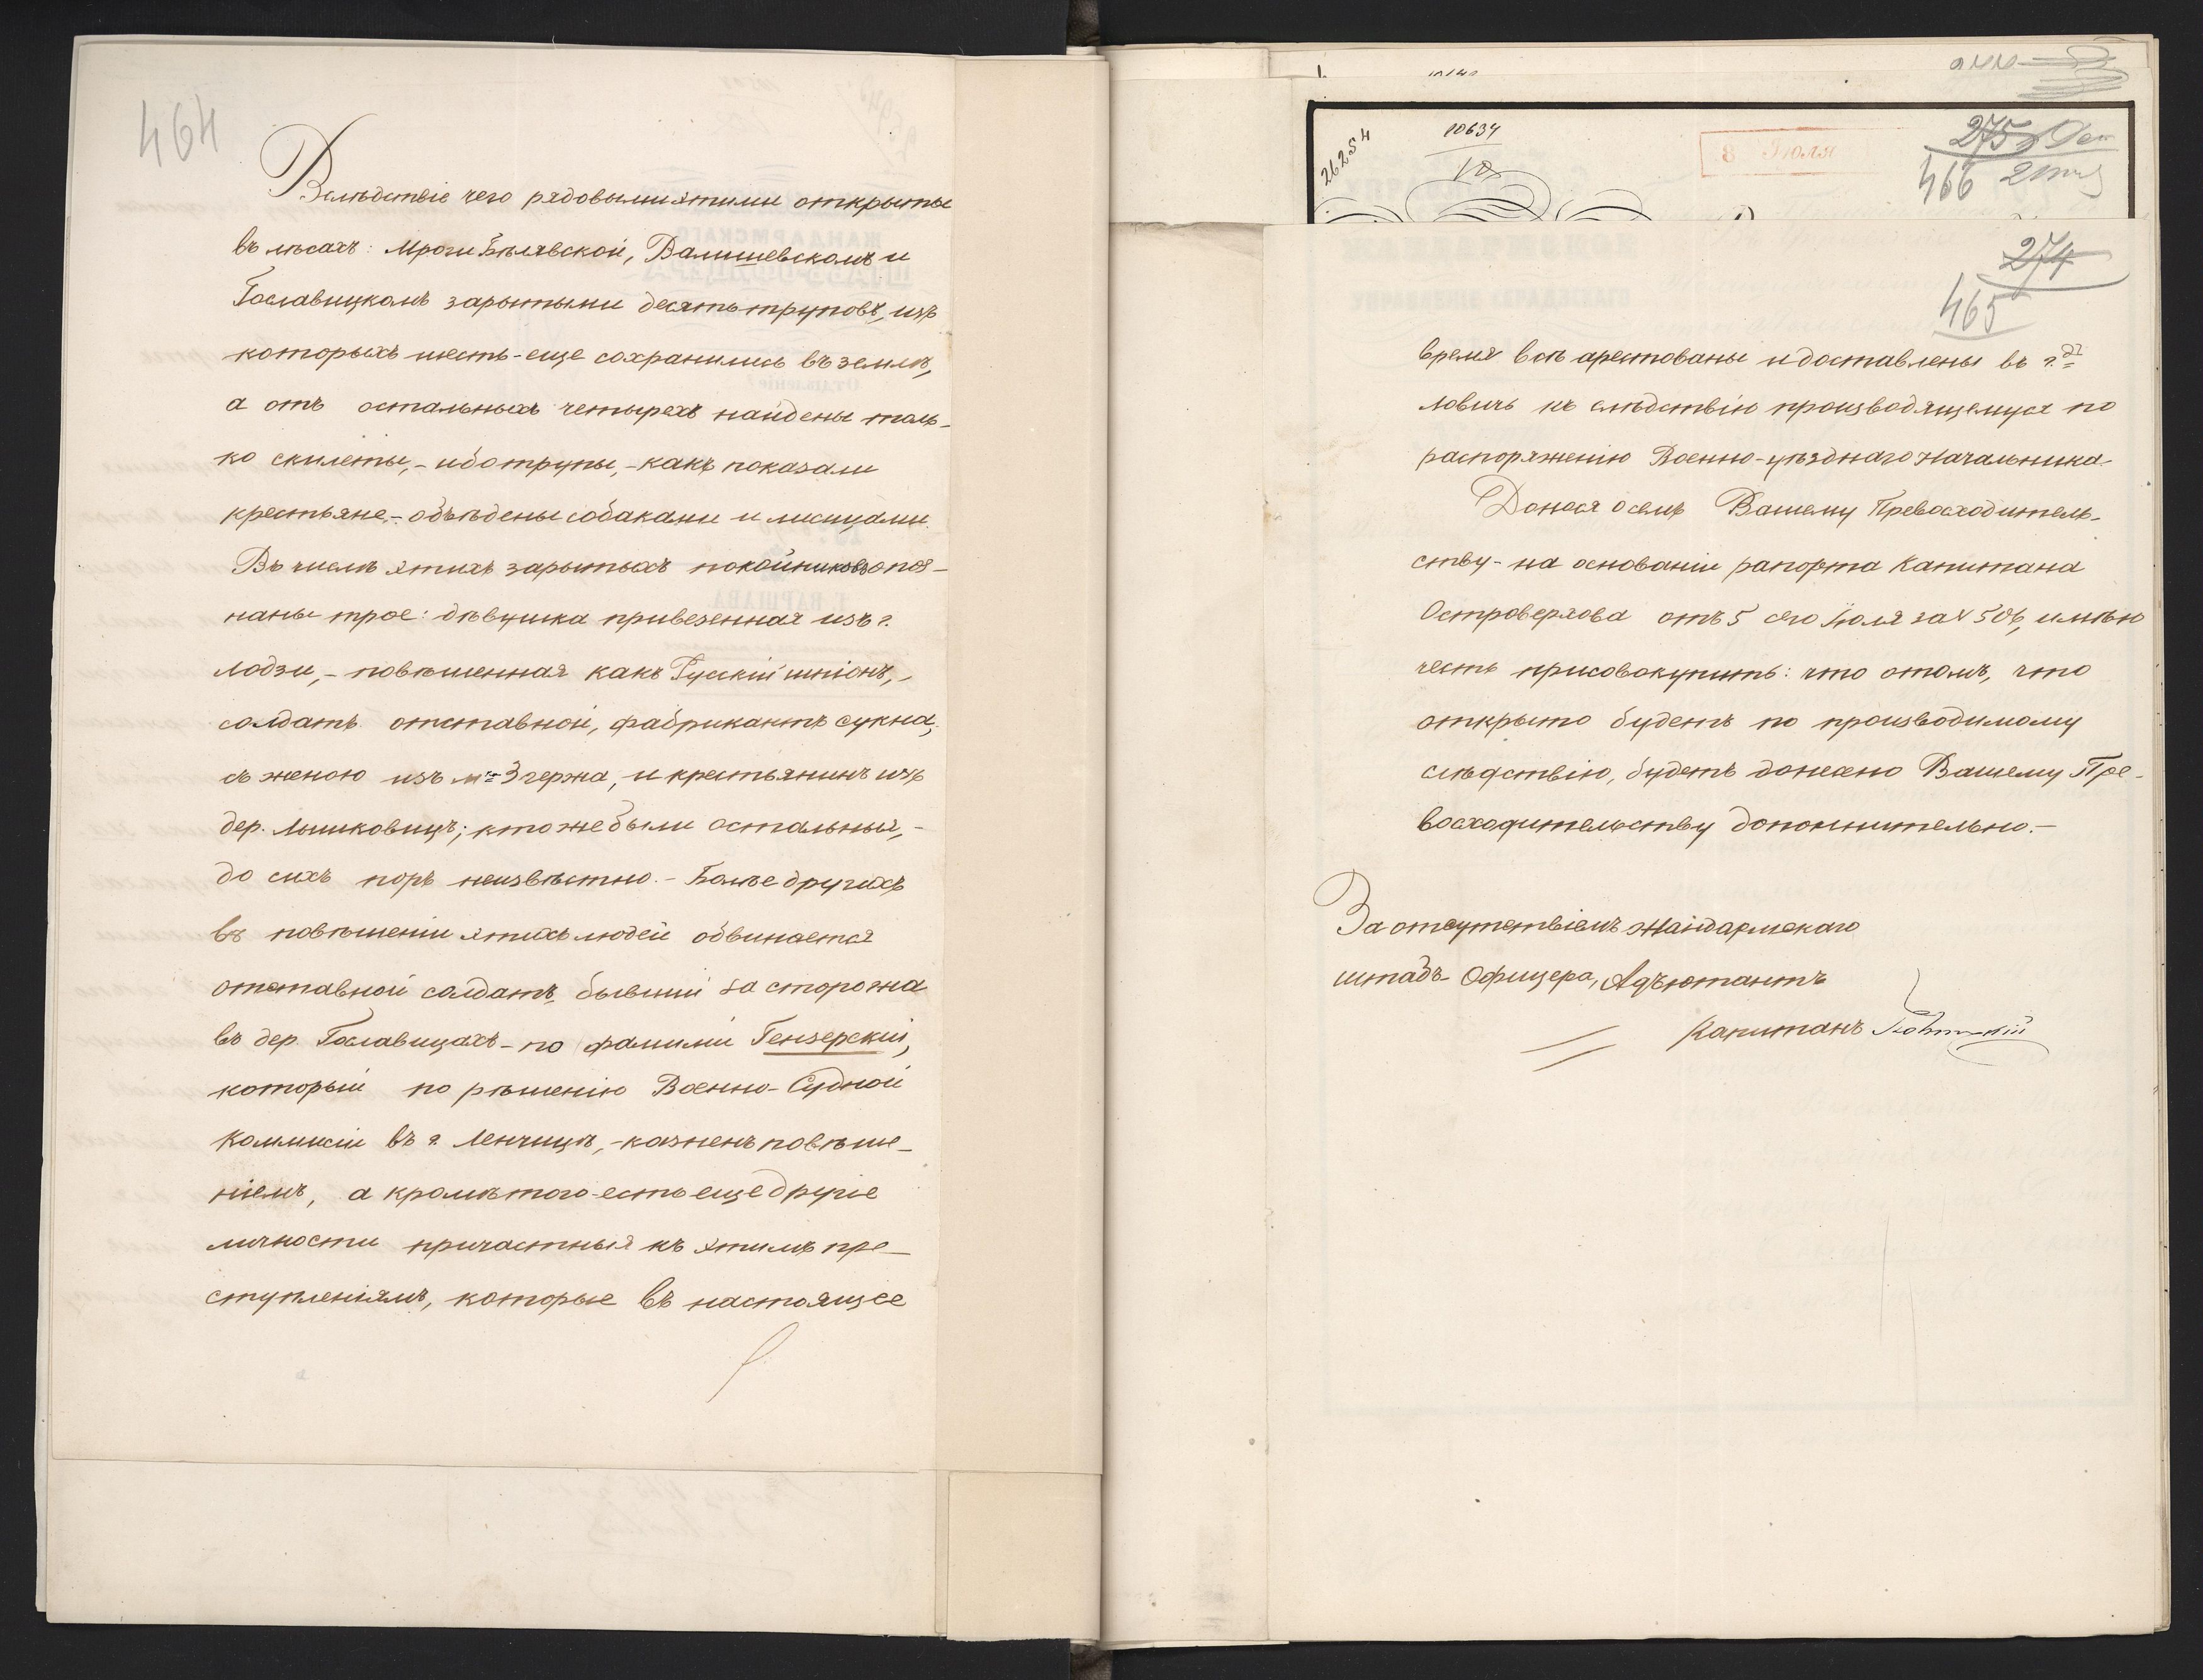 464
Вслѣдствіе чего рядовыми этими открыты
въ лѣсахъ: Мроги Бѣлявской, Валишевскомъ и
Гославицкомъ зарытыми десять труповъ, изъ
которыхъ шесть - еще сохранились въ землѣ,
а отъ остальныхъ четырехъ найдены толь-
ко скилеты, - ибо трупы, - какъ показали
крестьяне, - объѣдены собаками и лисицами.
Въ числѣ этихъ зарытыхъ покойниковъ опоз-
наны трое: дѣвушка привезенная изъ г.
Лодзи, - повѣшенная какъ Русскій шпіонъ, -
солдатъ отставной, фабрикантъ сукна,
съ женою изъ м. Згержа, и крестьянинъ изъ
дер. Лышковицъ; кто же были остальныи, -
до сихъ поръ неизвѣстно. - Болѣе другихъ
въ повѣшеніи этихъ людей обвиняется
отставной солдатъ, бывшій за сторожа
въ дер. Гославицахъ - по фамиліи Гензерскій,
который по рѣшенію Военно-Судной
Коммисіи въ г. Ленчицѣ, - казненъ повѣше-
ніемъ, а кромѣ того - есть еще другіе
личности причастныя къ этимъ пре-
ступленіямъ, которые въ настоящее
26254
10634
8 Июля
275
466
274
465
время всѣ арестованы и доставлены въ г.
Ловичь къ слѣдствію производящемуся по
распоряженію Военно-уѣзднаго Начальника.
Донося о семъ Вашему Превосходитель-
ству - на основаніи рапорта Капитана
Островерхова отъ 5 сего Іюля за № 506, имѣю
честь присовокупить: что о томъ, что
открыто будетъ по производимому
слѣдствію, будетъ донесено Вашему Пре-
восходительству дополнительно. -
За отсутствіемъ Жандармскаго
Штабъ-Офицера, Адъютантъ
Капитанъ